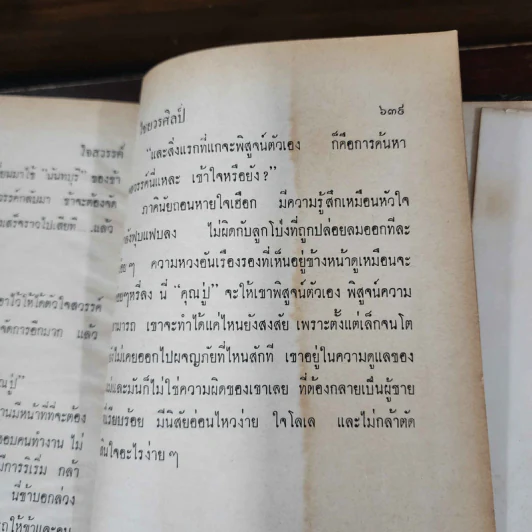 ใจสวรรค์
มมาใช้ "นันทบุรี" ของข้า
รรค์กลับมา ข้าจะต้องจัด
สร็จราวไปเสียที....แล้ว
าไว้ให้ได้ตัวใจสวรรค์
จัดการอีกมาก แล้ว
คุณปู่"
านมีหน้าที่ที่จะต้อง
ชอบคนทำงาน ไม่
มีการริเริ่ม กล้า
นี่ข้าบอกล่วง
ไชยวรศิลป์
๖๓๙
"และสิ่งแรกที่แกจะพิสูจน์ตัวเอง ก็คือการค้นหา
สวรรค์นี่แหละ เข้าใจหรือยัง?"
ภาคินัยถอนหายใจเฮือก มีความรู้สึกเหมือนหัวใจ
ฟุบแฟบลง ไม่ผิดกับลูกโป่งที่ถูกปล่อยลมออกทีละ
ๆ ความหวงอันเรืองรองที่เห็นอยู่ข้างหน้าดูเหมือนจะ
ๆหรี่ลง นี่ "คุณปู่" จะให้เขาพิสูจน์ตัวเอง พิสูจน์ความ
สามารถ เขาจะทำได้แค่ไหนยังสงสัย เพราะตั้งแต่เล็กจนโต
ไม่เคยออกไปผจญภัยที่ไหนสักที เขาอยู่ในความดูแลของ
และมันก็ไม่ใช่ความผิดของเขาเลย ที่ต้องกลายเป็นผู้ชาย
เรียบร้อย มีนิสัยอ่อนไหวง่าย ใจโลเล และไม่กล้าตัด
สินใจอะไรง่าย ๆ